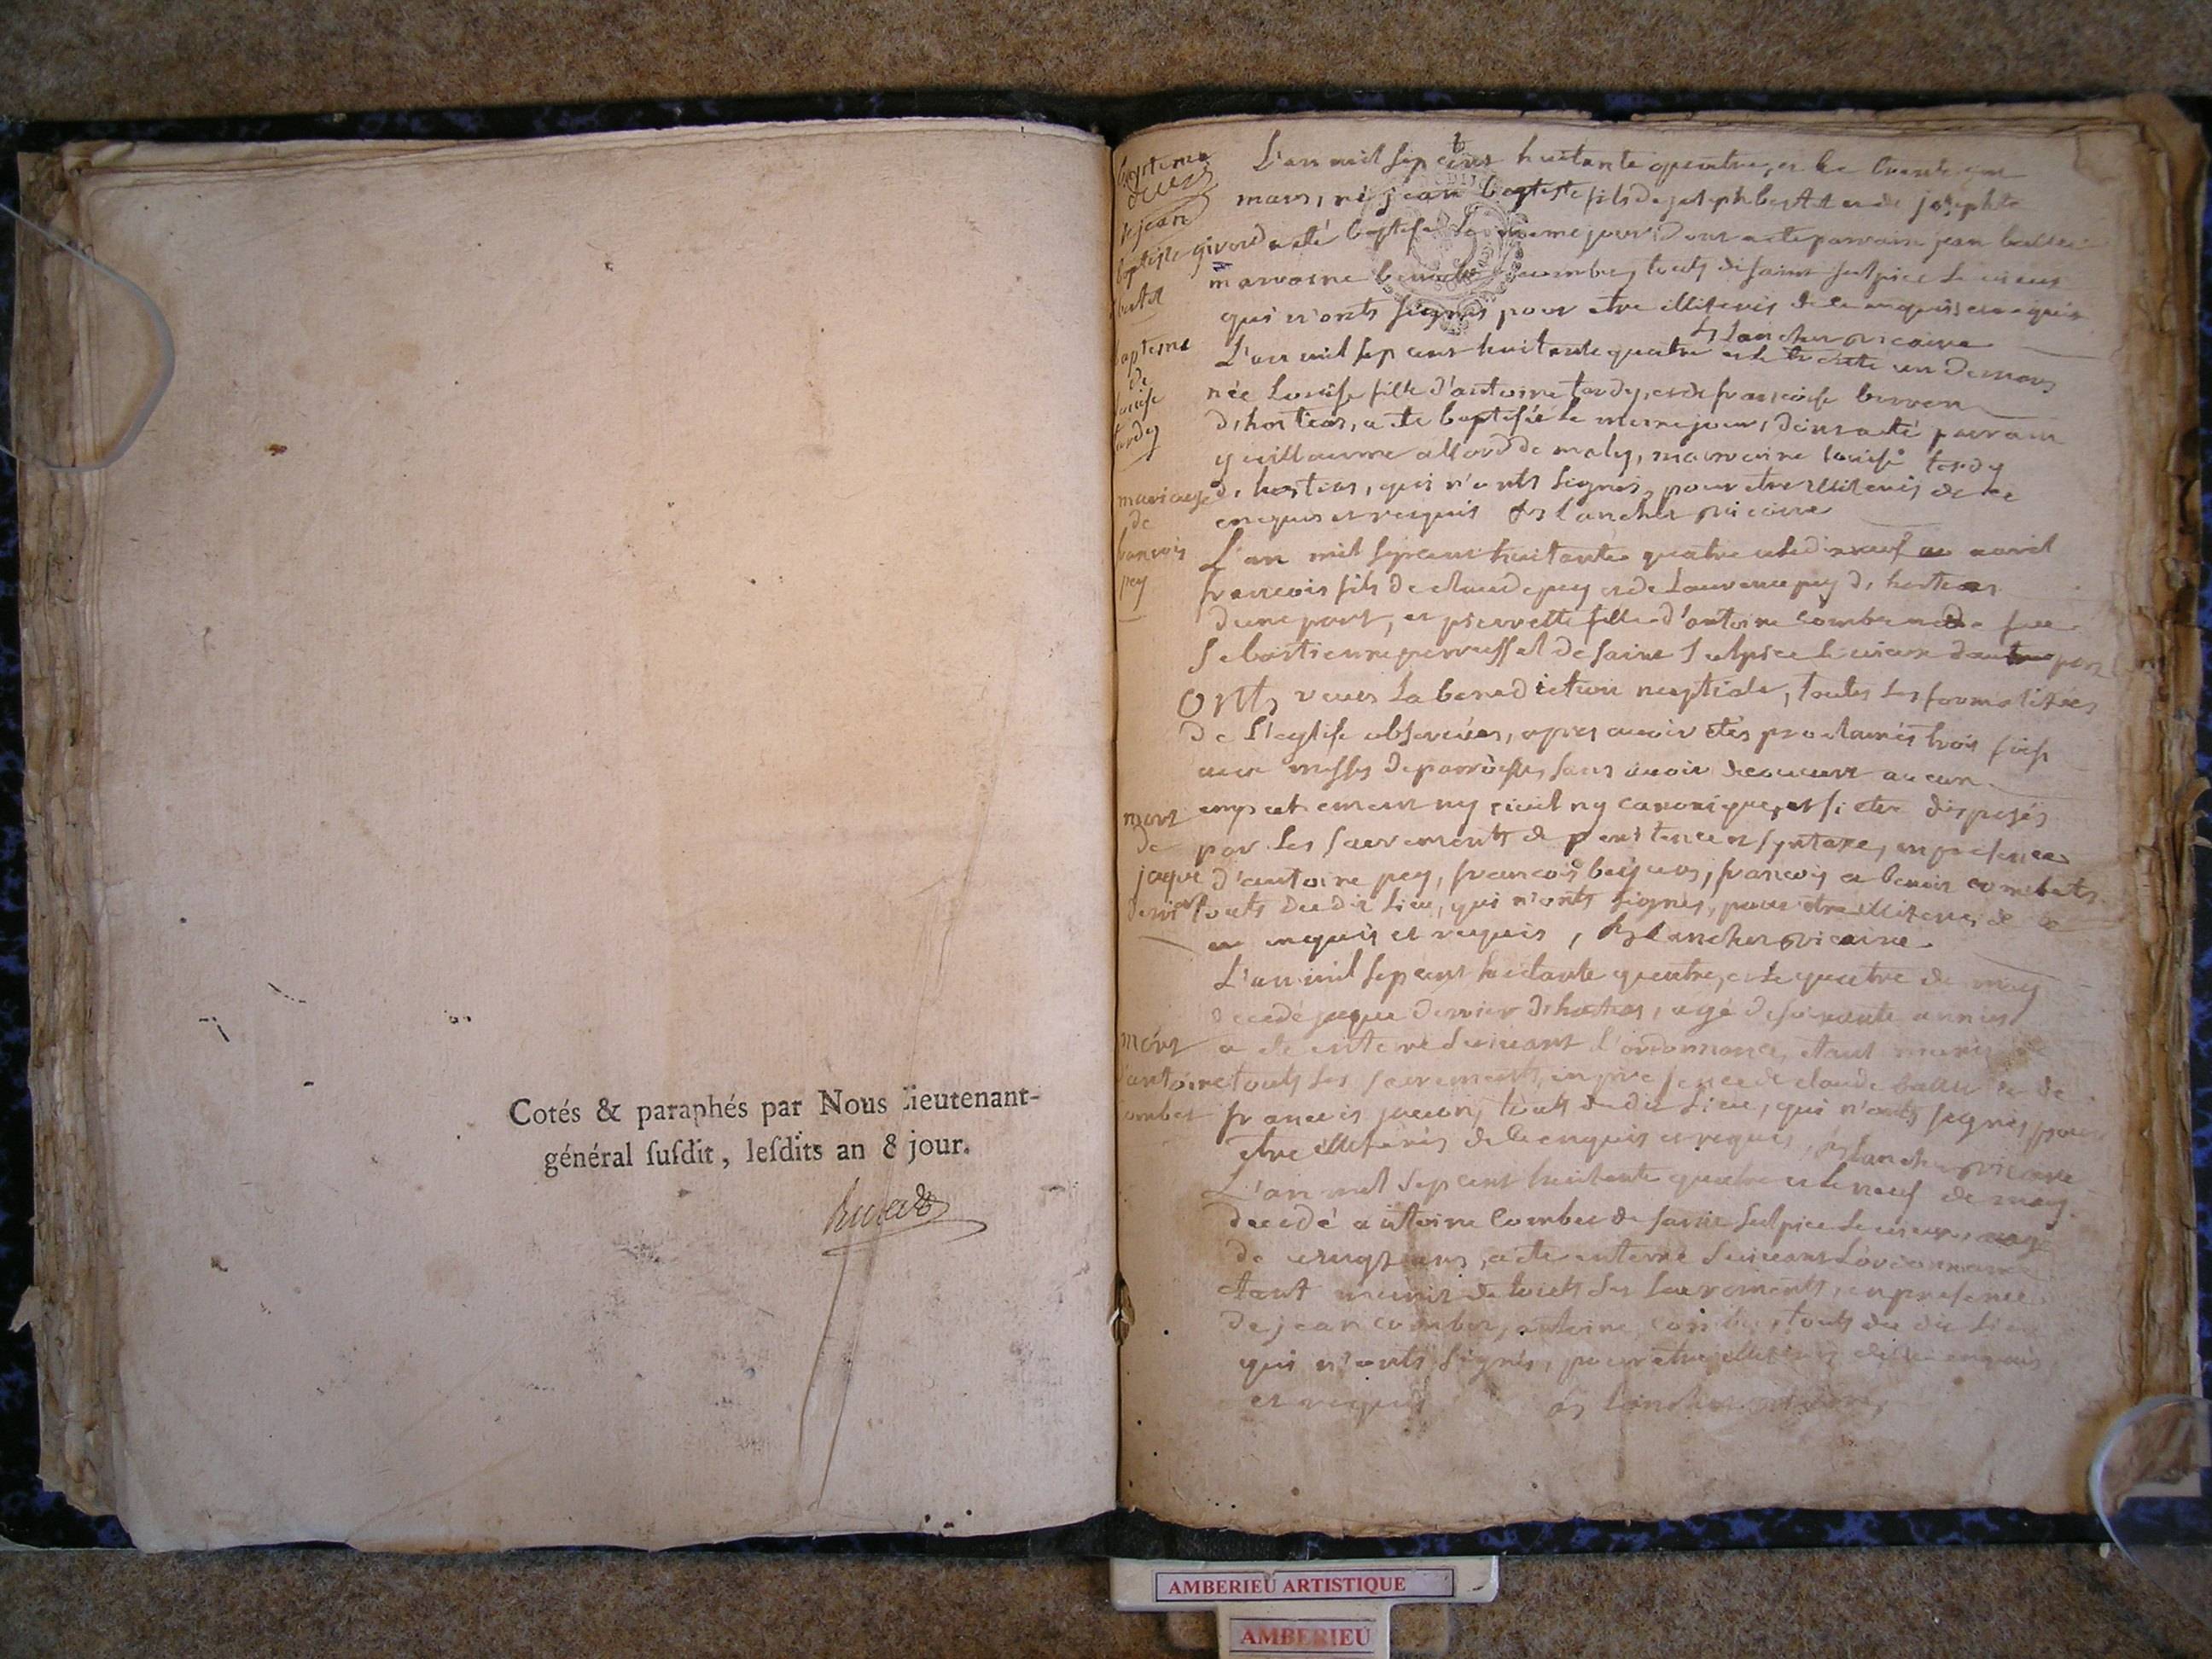 Cotés & paraphés par Nous Lieutenant-
général ſuſdit, leſdits an & jour.
bapteme
de jean
baptiste
L'an mil sep cents huitante quatre, et le trente un
mars, né jean baptiste fils de joseph et de josephte
girord a été baptisé le meme jour, dont a été parrain jean
marraine combes, touts de saint sulpice le vieux
qui n'onts signés pour etre illiterés de ce enquis et requis
lancher vicaire
bapteme
de
louise
tardy
L'an mil sep cens huitante quatre et le trente un de mars
née Louise fille d'antoine tardy, et de francoise
d'hostias, a été baptisée le meme jour, dont a été parrain
guillaume allord de maly, marraine louise tardy
d'hostias, qui n'onts signés, pour etre illiterés de ce
enquis et requis lancher vicaire
mariage
de
francois
pey
L'an mil sep cens huitante quatre et le dixneuf avril
francois fils de claude pey et de Laurence pey d'hostias
d'une part, et pierrette fille d'antoine combe et de feue
sebastienne perrusset de saint sulpice le vieux d'autre part
onts reçus la benediction nuptiale, toutes les formalitées
de l'eglise observées, apres avoir etés proclamés trois fois
aux messes de parroisse, sans avoir decouvert aucun
empechement ny civil ny canonique, et si etre disposés
par les sacrements de penitence et syntaxe, en presence
d'antoine pey, francois, francois et benoit combets
touts du dit lieu, qui n'onts signés, pour etre illiterés de ce
enquis et requis, lancher vicaire
mort
de
jaque
dernier
L'an mil sep cens huitante quatre, et le quatre de may
decedé jaque dernier d'hostias, agé de soixante années
a été enterré suivant l'ordonnance, etant munis de
touts les sacrements, en presence de claude et de
francois, touts du dit lieu, qui n'onts signés, pour
etre illiterés de ce enquis et requis, lancher vicaire
mort
d'antoine
combet
L'an mil sep cens huitante quatre et le neuf de may
decedé antoine combet de saint sulpice le vieux, agé
de ans, a été enterré suivant l'ordonnance
etant munis de touts les sacrements, en presence
de jean combet, antoine combet, touts du dit lieu
qui n'onts signés, pour etre illiterés de ce enquis
et requis lancher vicaire
AMBERIEU ARTISTIQUE
AMBERIEU